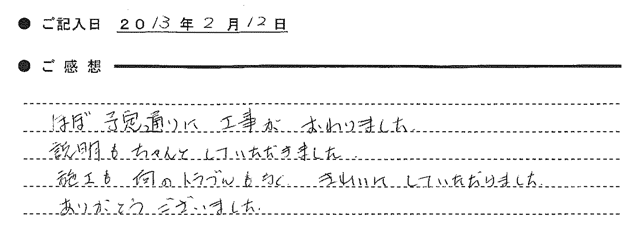 ● ご記入日 2013年2月12日
● ご感想
ほぼ 予定通りに 工事が おわりました。
説明も ちゃんと していただきました。
施工も 何のトラブルもなく きれいに していただけました。
ありがとう ございました。